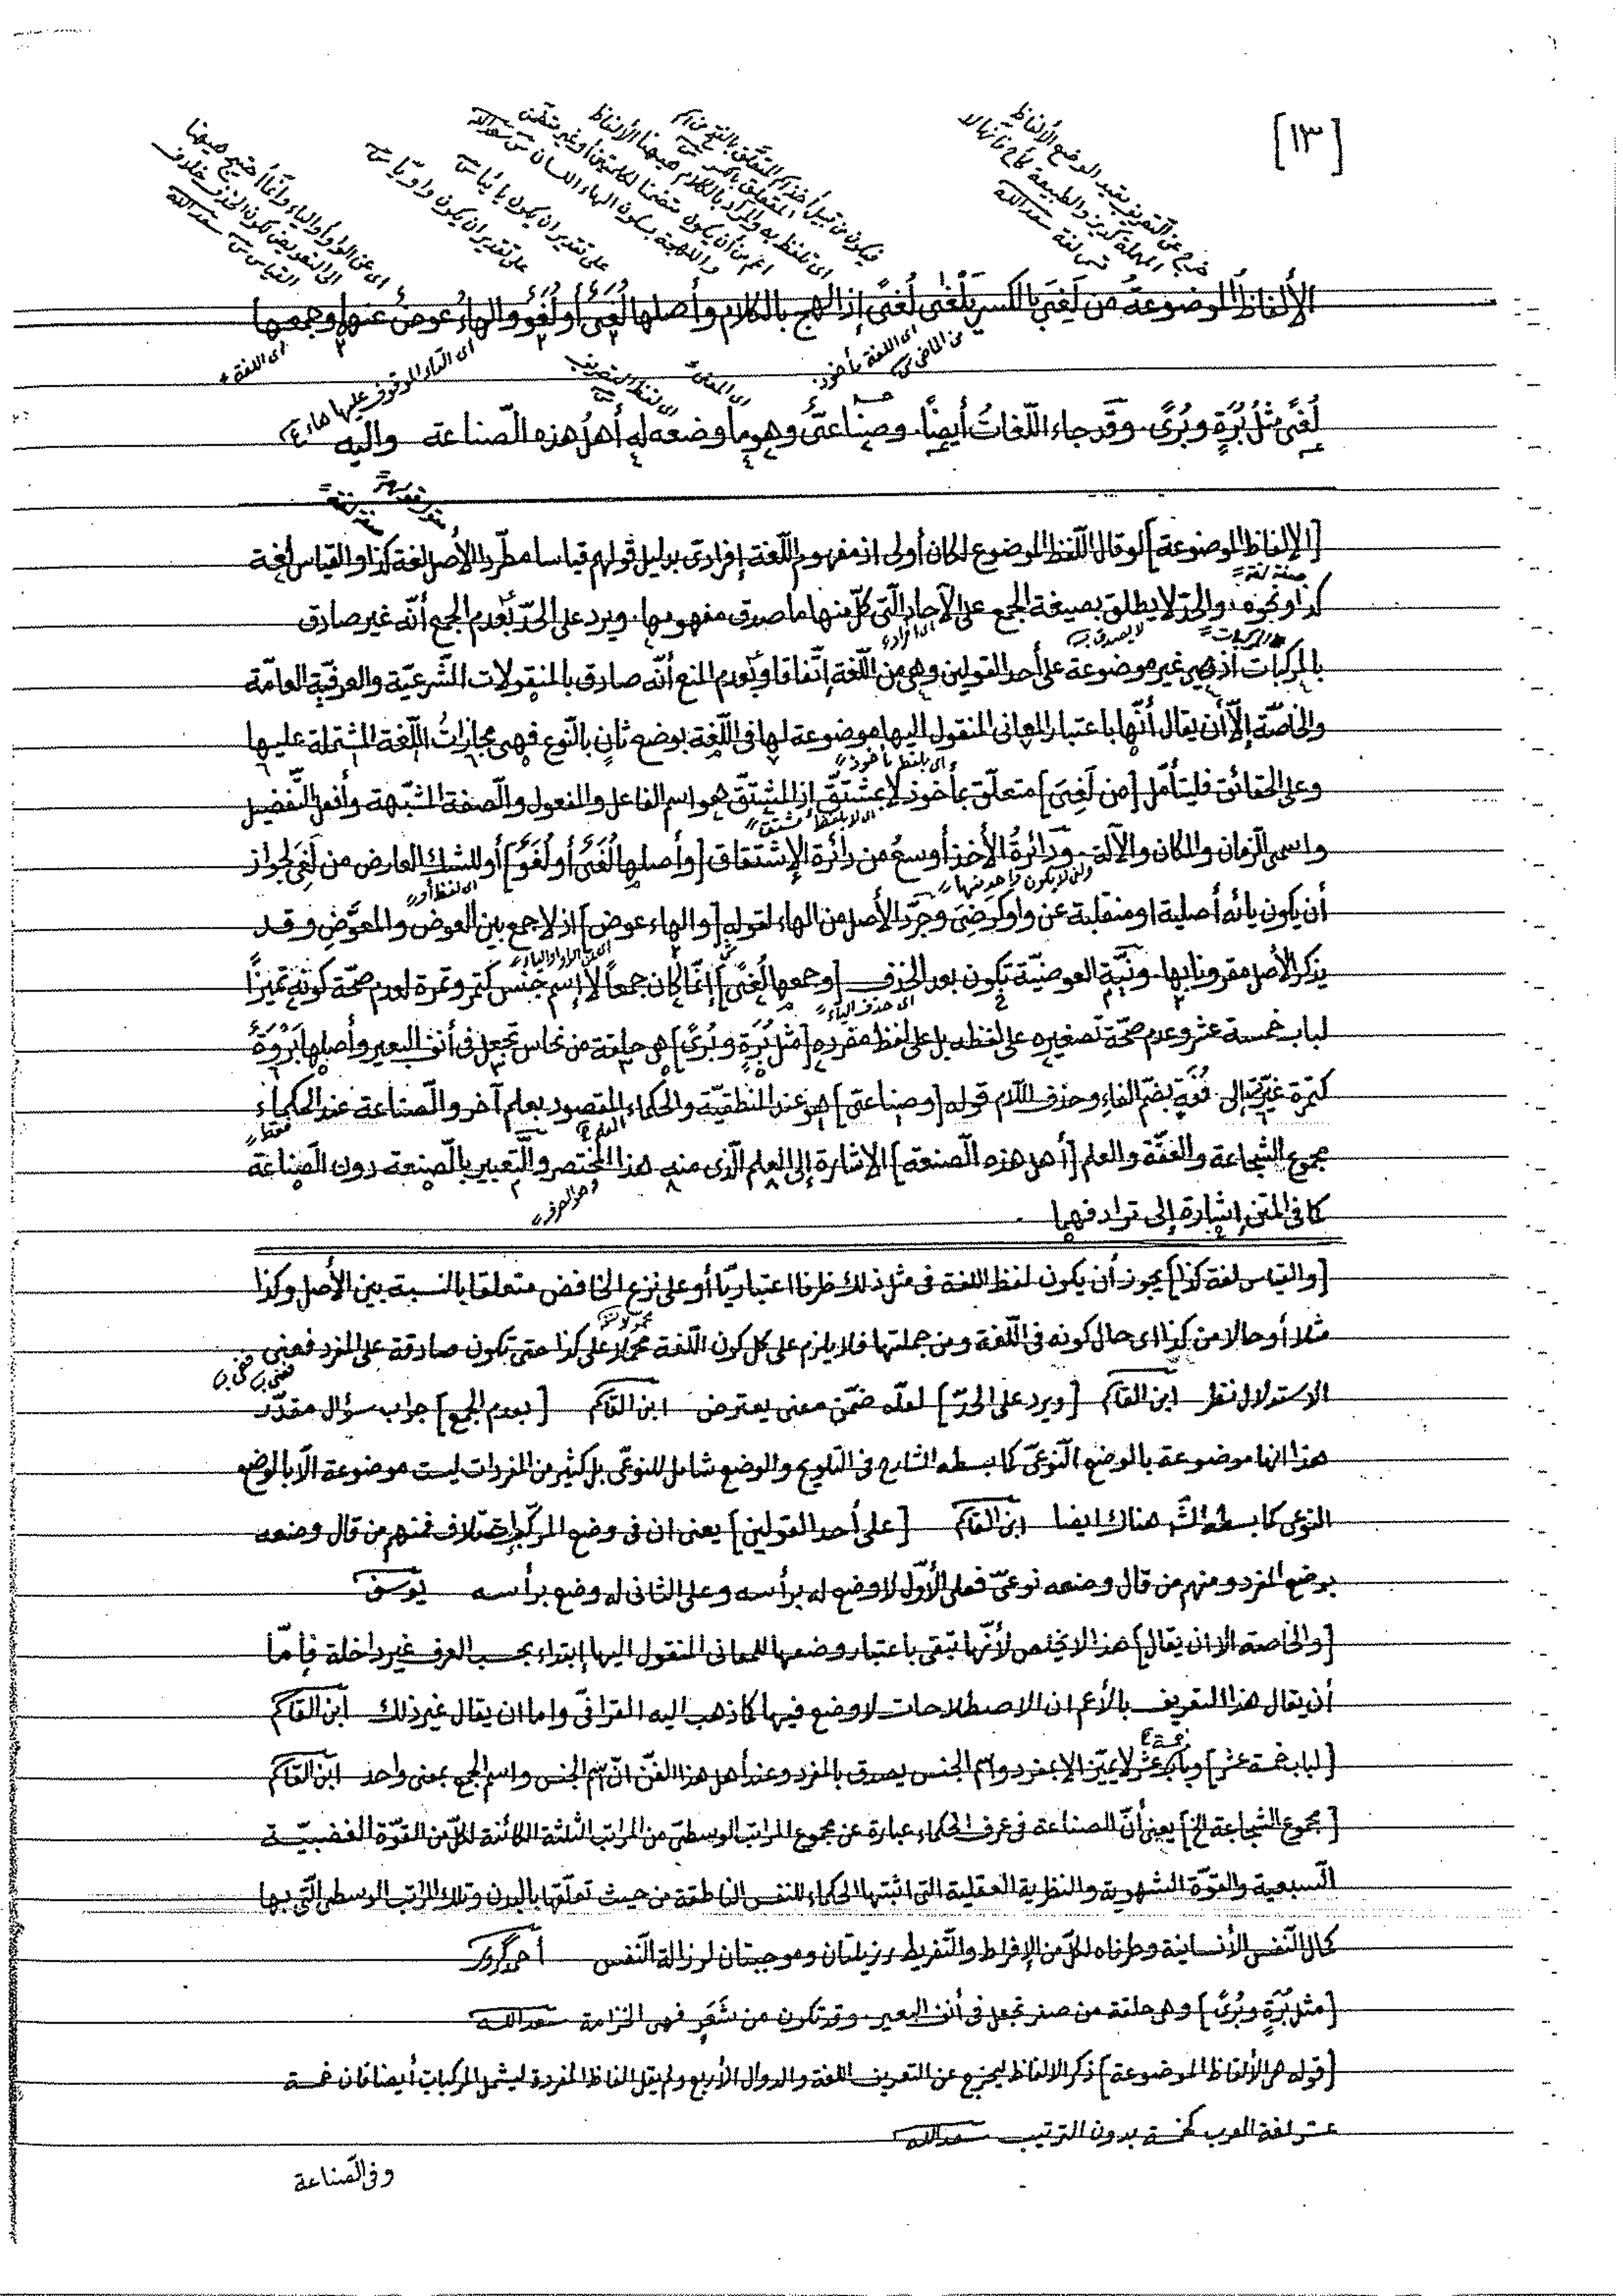 [١٣]
خرج عن التعريف بقيد الوضع الألفاظ
المهملة كديز والطبيعة كأح فانها لا
تسمى لغة سعد الله
اى تلفظ به والمراد بالكلام ههنا الألفاظ
اعم من أن يكون متضمنا لكلمتين أو غير متضمن
واللهجة بسكون الهاء اللسان سعد الله
على تقدير ان يكون يائيا
على تقدير ان يكون واويا
اى عن الواو أو الياء وانما احتيج ههنا
الى التعويض لكون الحذف خلاف
القياس سعد الله
الألفاظ الموضوعة من لَغِيَ بالكسر يَلْغَى لُغىً إذا لهج بالكلام وأصلها لُغَىٌ أو لُغَوٌ والهاءُ عوضٌ عنها وجمعها
من الماضى
اى اللغة مأخوذ
اى المعنى
اى لفظ التصريف
اى التاء الموقوف عليها هاء
اى اللغة
لُغىً مثلُ بُرَةٍ وبُرىً. وقد جاء اللّغاتُ أيضًا. وصناعىّ وهو ما وضعه له أهلُ هذه الصّناعة واليه
[الالفاظ الموضوعة] لو قال اللّفظ الموضوع لكان أولى اذ مفهوم اللّغة إفرادىّ بدليل قولهم قياسا مطّردا الأصل لغة كذا والقياس لغة
صفة لغة
كذا ونحوه. والحدّ لا يطلق بصيغة الجمع على الآحاد الّتى كلّ منها ما صدق مفهومها. ويرد على الحدّ بعدم الجمع أنّه غير صادق
بالمركبات اذ هى غير موضوعة على أحد القولين وهى من اللّغة إتّفاقا وبعدم المنع أنّه صادق بالمنقولات الشّرعيّة والعرفيّة العامّة
والخاصّة إلاّ أن يقال أنّها باعتبار المعانى المنقول اليها موضوعة لها فى اللّغة بوضع ثانٍ بالنّوع فهى مجازاتُ اللّغة المشتملة عليها
اى بلفظ مأخوذ
وعلى الحقائق فليتأمّل [من لَغِىَ] متعلّق بمأخوذ لا بمشتقّ إذ المشتقّ هو اسم الفاعل والمفعول والصّفة المشبّهة وأفعل التّفضيل
اى لا بلفظ مشتق
واسمى الزّمان والمكان والآلة. ودائرةُ الأخذ أوسعُ من دائرة الإشتقاق [وأصلها لُغَىٌ أو لُغَوٌ] أو للشك العارض من لَغِىَ لجواز
اى لفظ أو
أن يكون يائه أصلية او منقلبة عن واو كرَضِىَ وجرّد الأصل من الهاء لقوله [والهاء عوض] اذ لا جمع بين العوض والمعوَّض وقد
اى عن الواو او الياء
يذكر الأصل مقرونا بها. ونيّة العوضيّة تكون بعد الحذف [وجمعها لُغىً] إنّما كان جمعاً لا إسم جنس كتمر وتمرة لعدم صحّة كونه تمييزًا
اى حذف الياء
لباب خمسة عشر وعدم صحّة تصغيره على لفظه بل على لفظ مفرده [مثل بُرَةٍ وبُرىً] هى حلقة من نحاس تجعل فى أنف البعير وأصلها بَرْوَةٌ
كتمرة غيّرت إلى فُعَةٍ بضمّ الفاء وحذف اللّام قوله [وصناعىّ] هو عند المنطقيّة والحكماء المقصود بعلم آخر والصّناعة عند الحكماء
فقط
مجموع الشجاعة والعفّة والعلم [أهل هذه الصّنعة] الإشارة إلى العلم الّذى منه هذا المختصر والتّعبير بالصّنعة دون الصّناعة
وهو الصرف
كما فى المتن إشارة إلى ترادفهما
[والقياس لغة كذا] يجوز أن يكون لفظ اللغة فى مثل ذلك ظرفا اعتباريّا أو على نزع الخافض متعلقا بالنسبة بين الأصل وكذا
مثلا أو حالا من كذا اى حال كونه فى اللّغة ومن جملتها فلا يلزم على كل كون اللّغة محمولا على كذا حتى تكون صادقة على المفرد فمعنى
الاستدلال نظر ابن القاسم [ويرد على الحدّ] لعلّه ضمّن معنى يعترض ابن القاسم [بعدم الجمع] جواب سؤال مقدّر
هذا انها موضوعة بالوضع النّوعىّ كما بسطه الشارح فى التلويح والوضع شامل للنوعىّ بل كثير من المفردات ليست موضوعة الّا بالوضع
النوعى كما بسطه الشّ هناك ايضا ابن القاسم [على أحد القولين] يعنى ان فى وضع المركّب إختلاف فمنهم من قال وضعه
بوضع المفرد ومنهم من قال وضعه نوعىّ فعلى الأوّل لا وضع له برأسه وعلى الثانى له وضع برأسه يوسف
[والخاصّة الا ان يقال] هذا لا يخلص لأنّها تبقى باعتبار وضعها للمعانى المنقول اليها إبتداء بحسب العرف غير داخلة فإمّا
أن يقال هذا التعريف بالأعم ان الاصطلاحات لا وضع فيها كما ذهب اليه القرافىّ واما ان يقال غير ذلك ابن القاسم
[لباب خمسة عشر] وباب عشر لا يميّز الا بمفرد واسم الجنس يصدق بالمفرد وعند أهل هذا الفنّ انّ اسم الجنس واسم الجمع بمعنى واحد ابن القاسم
[مجموع الشجاعة الخ] يعنى أنّ الصناعة فى عرف الحكماء عبارة عن مجموع المراتب الوسطى من المراتب الثلثة الكائنة لكلّ من القوّة الغضبيّة
السبعية والقوّة الشهوية والنظرية العقلية التى اثبتها الحكماء للنفس الناطقة من حيث تعلّقها بالبدن وتلك المراتب الوسطى الّتى بها
كمال النّفس الأنسانية وطرفاه لكلّ من الإفراط والتّفريط رزيلتان وموجبتان لرزالة النّفس
[مثل بُرَةٍ وبُرىً] وهى حلقة من صفر تجعل فى أنف البعير. وقد تكون من شَعَرٍ فهى الخزامة سعد الله
[قوله هى الألفاظ الموضوعة] ذكر الالفاظ ليخرج عن التعريف اللغة والدوال الأربع ولم يقل الفاظ المفردة ليشمل المركبات أيضا فان خمسة
عشر لغة العرب كخمسة بدون الترتيب سعد الله
وفى الصّناعة